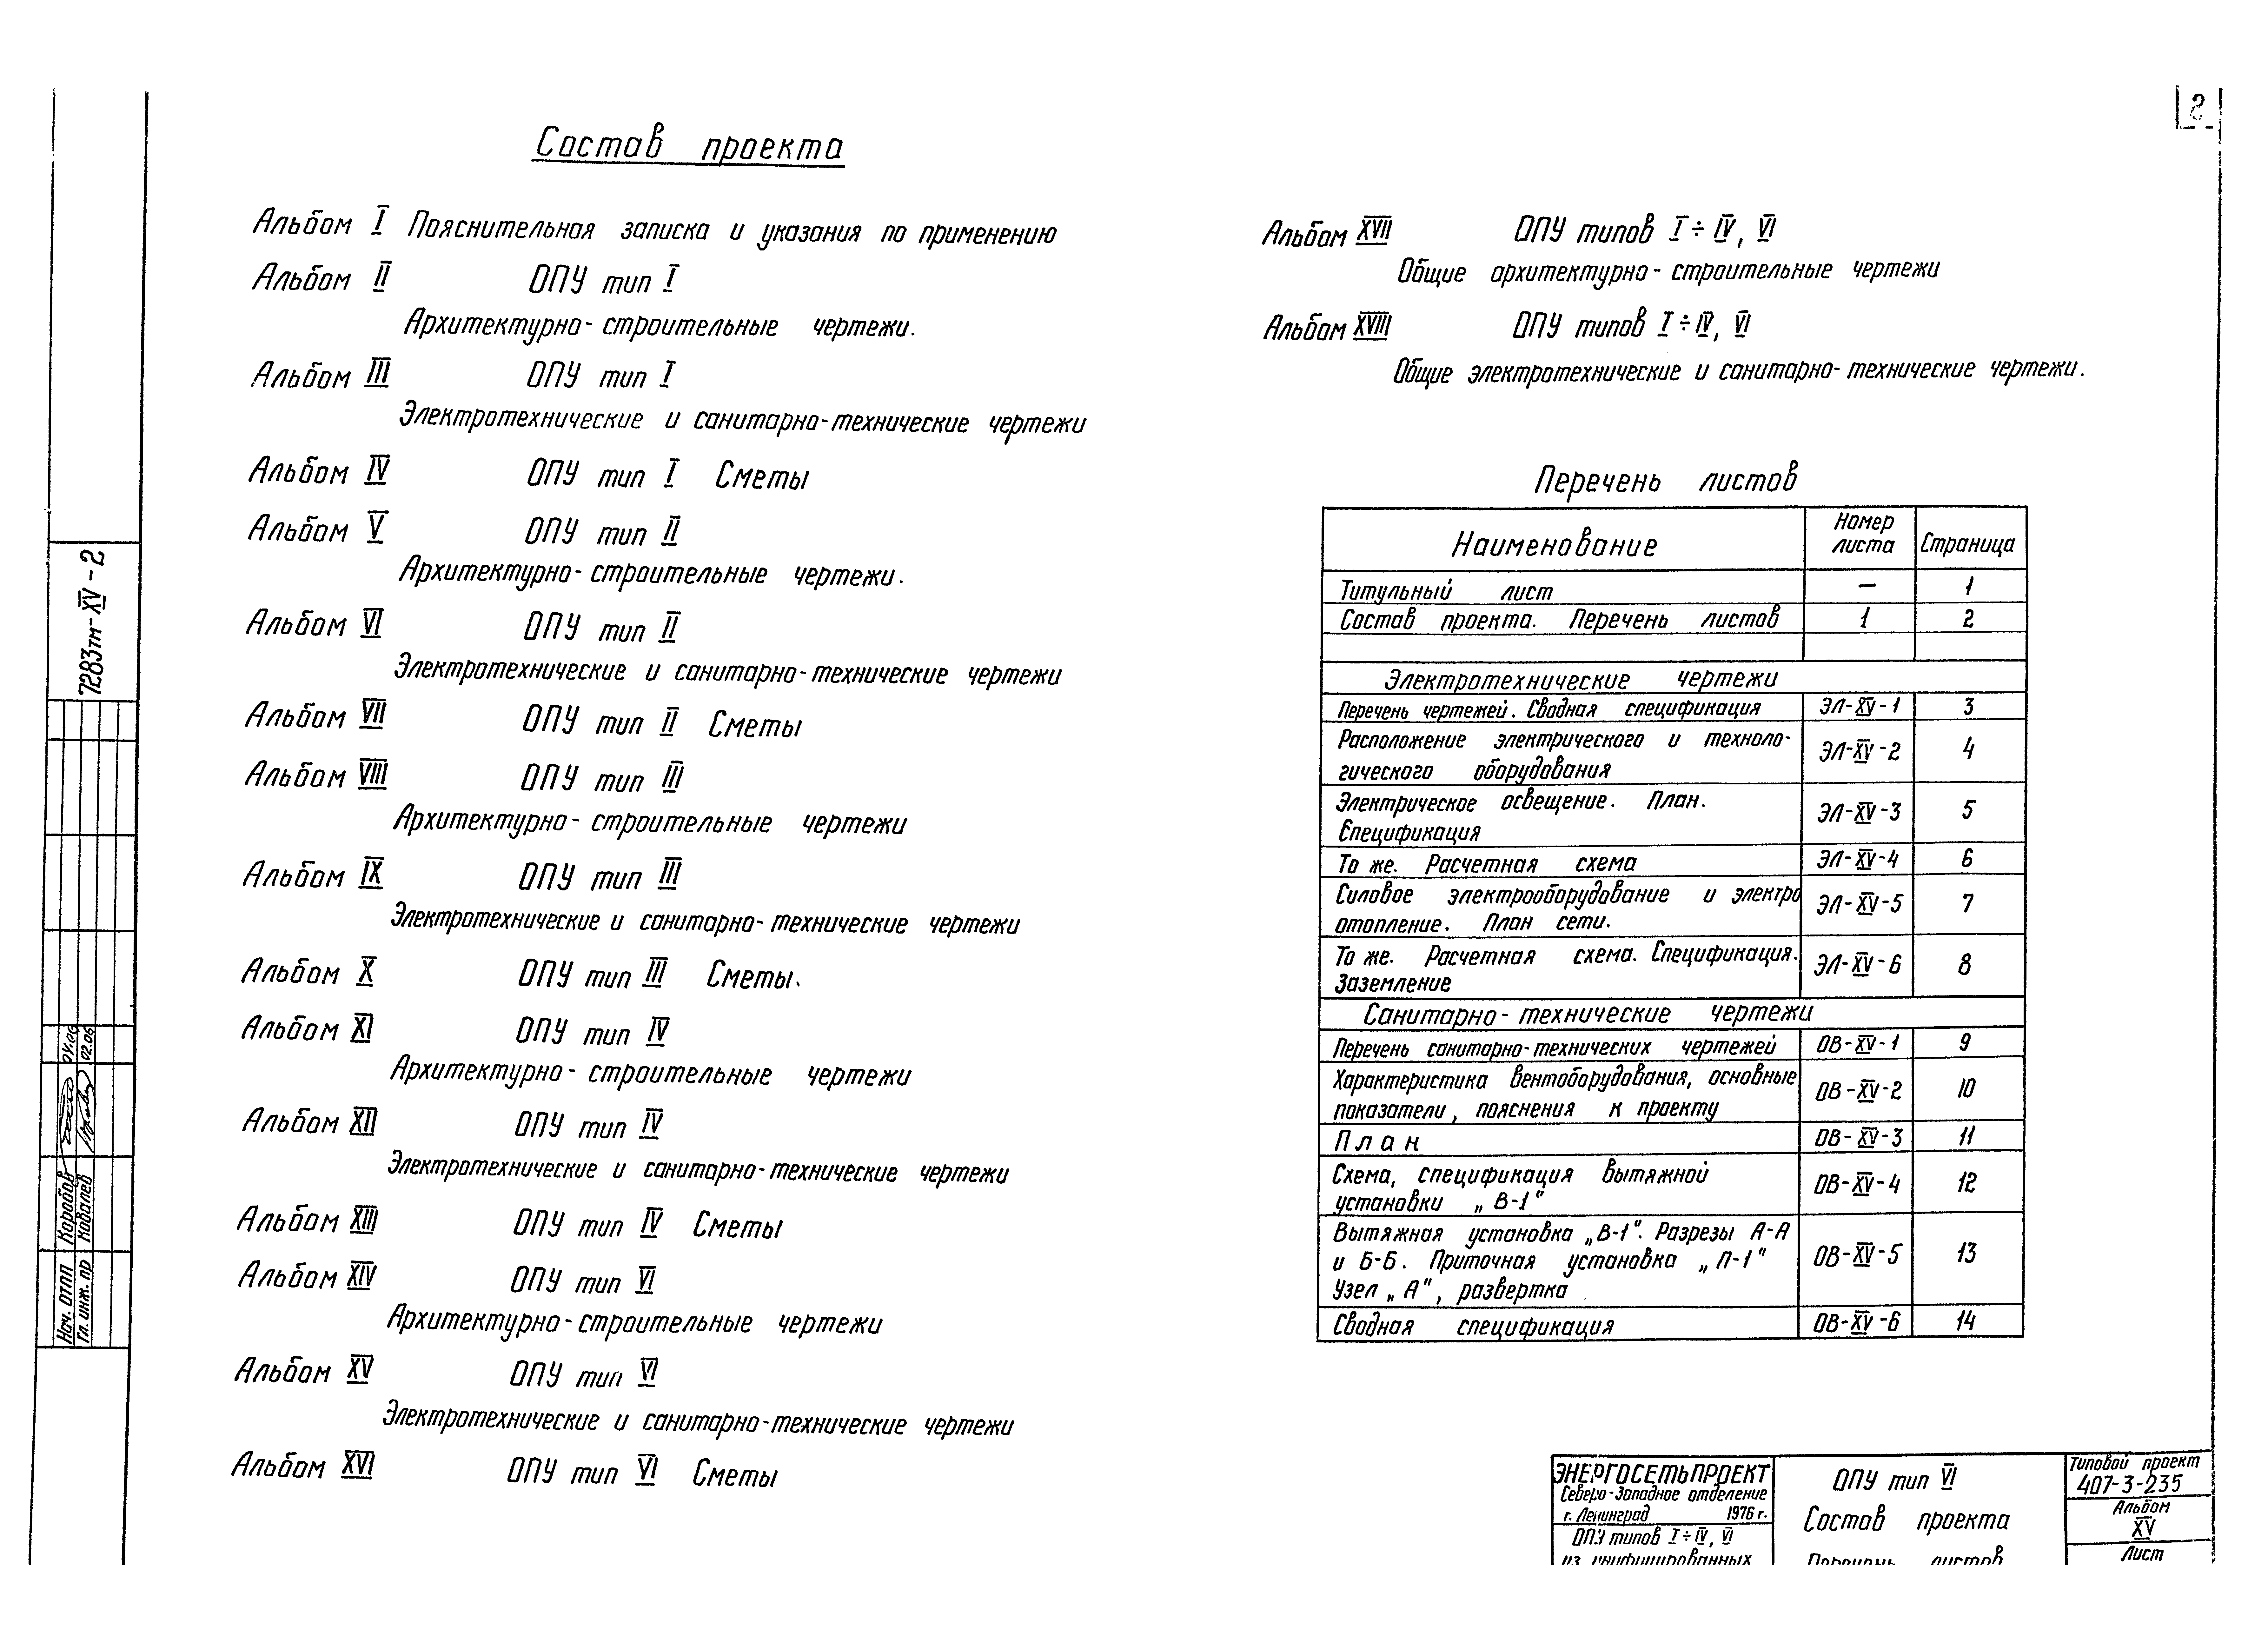 2
Состав проекта
Альбом I Пояснительная записка и указания по применению
Альбом II ОПУ тип I
Архитектурно-строительные чертежи.
Альбом III ОПУ тип I
Электротехнические и санитарно-технические чертежи
Альбом IV ОПУ тип I Сметы
Альбом V ОПУ тип II
Архитектурно-строительные чертежи.
Альбом VI ОПУ тип II
Электротехнические и санитарно-технические чертежи
Альбом VII ОПУ тип II Сметы
Альбом VIII ОПУ тип III
Архитектурно-строительные чертежи
Альбом IX ОПУ тип III
Электротехнические и санитарно-технические чертежи
Альбом X ОПУ тип III Сметы.
Альбом XI ОПУ тип IV
Архитектурно-строительные чертежи
Альбом XII ОПУ тип IV
Электротехнические и санитарно-технические чертежи
Альбом XIII ОПУ тип IV Сметы
Альбом XIV ОПУ тип VI
Архитектурно-строительные чертежи
Альбом XV ОПУ тип VI
Электротехнические и санитарно-технические чертежи
Альбом XVI ОПУ тип VI Сметы
Альбом XVII ОПУ типов I÷IV, VI
Общие архитектурно-строительные чертежи
Альбом XVIII ОПУ типов I÷IV, VI
Общие электротехнические и санитарно-технические чертежи.
Перечень листов
Наименование Номер листа Страница
Титульный лист — 1
Состав проекта. Перечень листов 1 2
Электротехнические чертежи
Перечень чертежей. Сводная спецификация ЭЛ-XV-1 3
Расположение электрического и техноло-
гического оборудования ЭЛ-XV-2 4
Электрическое освещение. План.
Спецификация ЭЛ-XV-3 5
То же. Расчетная схема ЭЛ-XV-4 6
Силовое электрооборудование и электро
отопление. План сети. ЭЛ-XV-5 7
То же. Расчетная схема. Спецификация.
Заземление ЭЛ-XV-6 8
Санитарно-технические чертежи
Перечень санитарно-технических чертежей ОВ-XV-1 9
Характеристика вентоборудования, основные
показатели, пояснения к проекту ОВ-XV-2 10
План ОВ-XV-3 11
Схема, спецификация вытяжной
установки „В-1" ОВ-XV-4 12
Вытяжная установка „В-1". Разрезы А-А
и Б-Б. Приточная установка „П-1"
Узел „А", развертка ОВ-XV-5 13
Сводная спецификация ОВ-XV-6 14
ЭНЕРГОСЕТЬПРОЕКТ
Северо-Западное отделение
г. Ленинград 1976 г.
ОПУ типов I÷IV, VI
из унифицированных
ОПУ тип VI
Состав проекта
Перечень листов
Типовой проект
407-3-235
Альбом
XV
Лист
7283тм-XV-2
Нач. ОТПП Коробов
Гл. инж. пр Ковалёв 02.06